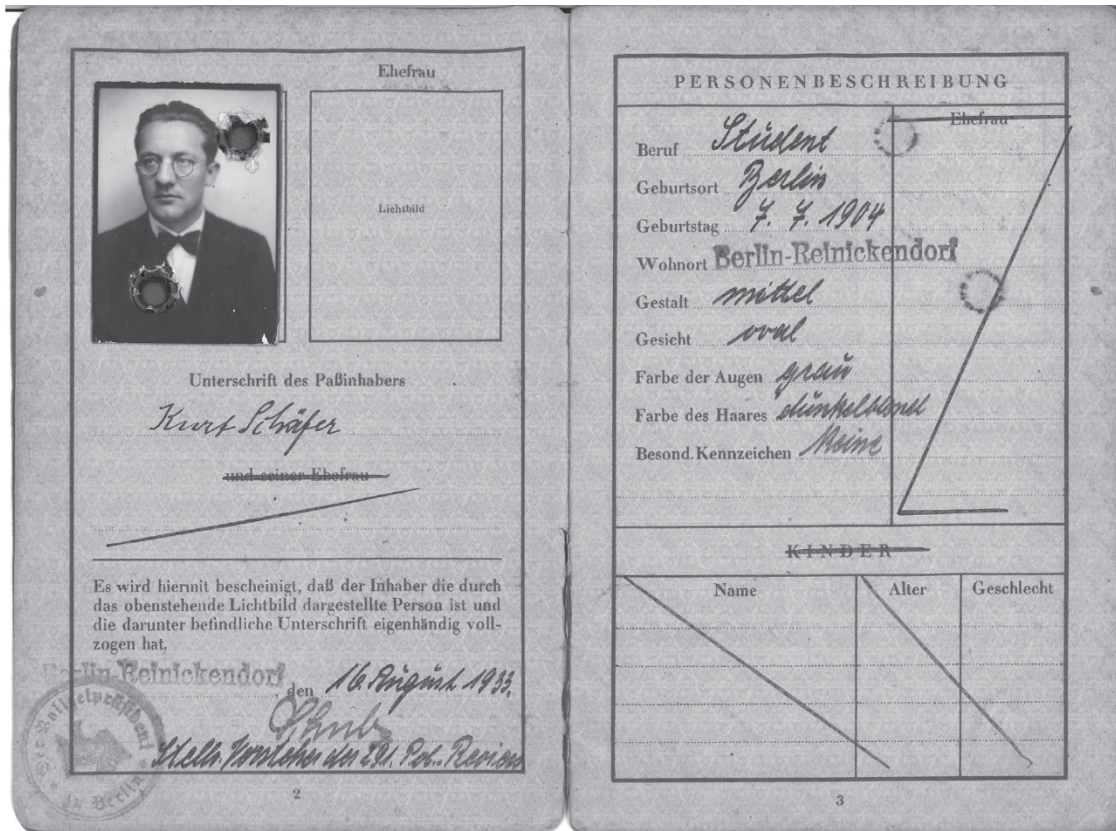 Ehefrau
Lichtbild
Unterschrift des Paßinhabers
Kurt Schäfer
und seiner Ehefrau
Es wird hiermit bescheinigt, daß der Inhaber die durch
das obenstehende Lichtbild dargestellte Person ist und
die darunter befindliche Unterschrift eigenhändig voll-
zogen hat.
Berlin-Reinickendorf, den 16. August 1933.
Stellv. Vorsteher des 291. Pol.-Reviers
Der Polizeipräsident
in Berlin
2
PERSONENBESCHREIBUNG
Ehefrau
Beruf Student
Geburtsort Berlin
Geburtstag 7. 7. 1904
Wohnort Berlin-Reinickendorf
Gestalt mittel
Gesicht oval
Farbe der Augen grau
Farbe des Haares dunkelblond
Besond. Kennzeichen Keine
KINDER
Name Alter Geschlecht
3